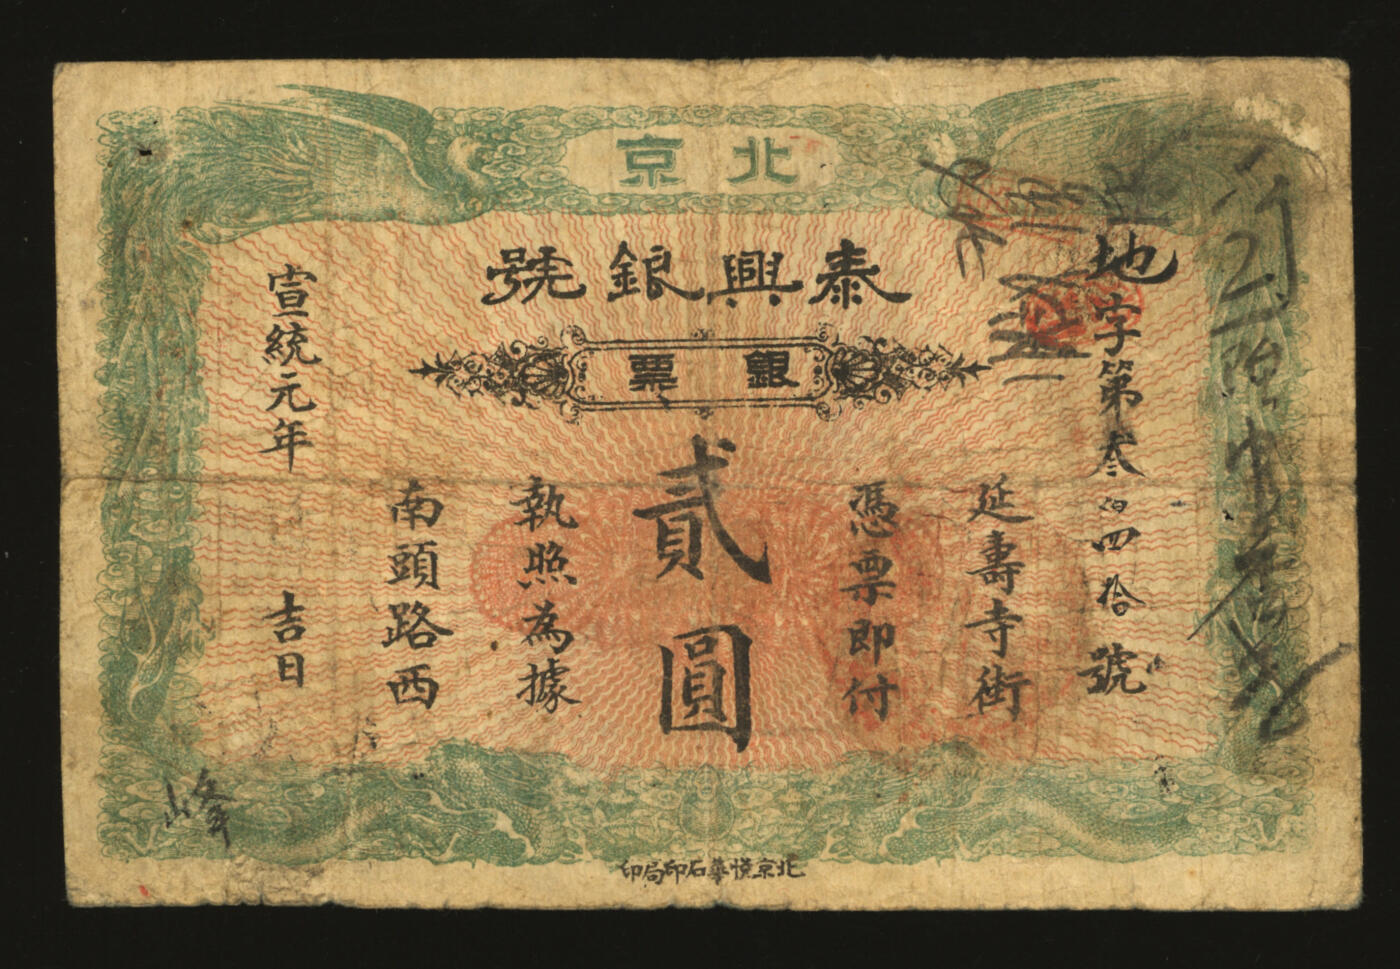 北京
泰興銀號
銀票
地字第叁佰四拾號
延壽寺街
憑票即付
貳圓
執照為據
南頭路西
宣統元年 吉日
峰
北京悅華石印局印